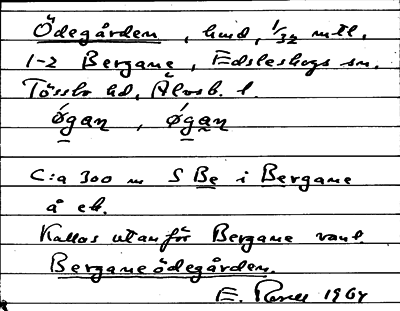 Ödegården, hmd, 1/32 mtl.
1-2 Bergane, Edsleskogs sn.
Tössbo hd, Älvsb. l.
øgan, øgan
C:a 300 m S Be i Bergane
å ek.
Kallas utanför Bergane vanl.
Berganeödegården.
E. 1964